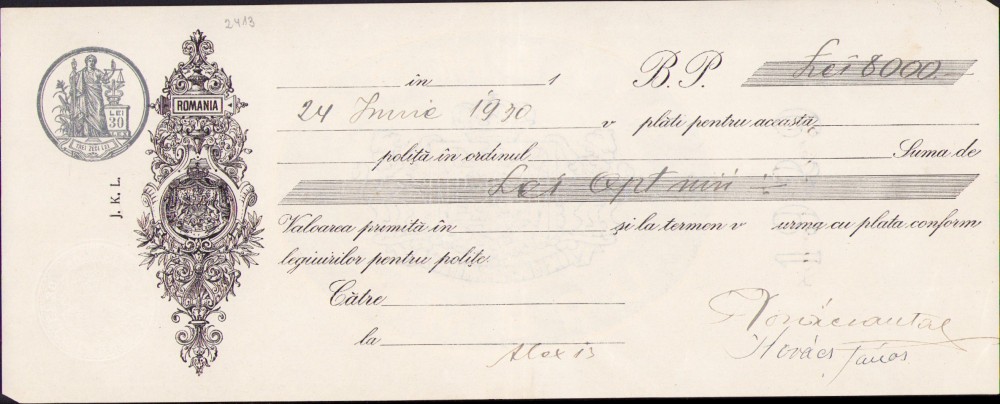 2413
în 1 B. P. Lei 8000
ROMANIA
LEI
30
TREI ZECI LEI
24 Iunie 1930 v plăti pentru aceastâ
poliţă în ordinul Suma de
Lei opt mii
J. K. L.
Valoarea primită în şi la termen v urma cu plata conform
legiuirilor pentru poliţe.
Către
la
Kovács János